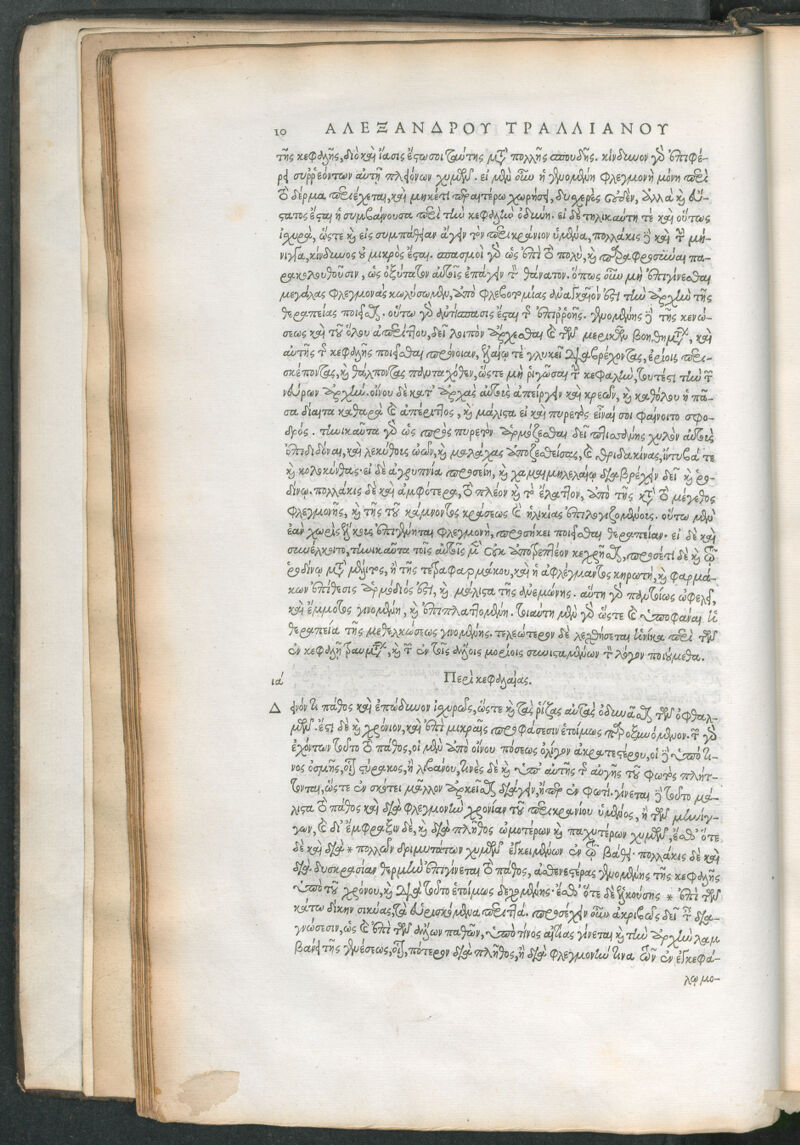 10 ΑΛΕΞΑΝΔΡΟΥ ΤΡΑΛΛΙΑΝΟΥ
τῆς κεφαλῆς, διὸ καὶ ἴασις ἔςω σοι ταύτης μετὰ πολλῆς σπουδῆς. κίνδυνον γὸ ἐπιφέ-
ρει συῤῥεόντων αὐτῇ πλειόνων χυμῶν. εἰ μὲν οὖν ἡ γενομένη φλεγμονὴ μόνη περὶ
τὸ δέρμα περιέχεται, καὶ μηκέτι περαιτέρω χωρήσει, δυχερὲς οὐδὲν, ἀλλὰ καὶ
ἔςαι ἡ συμβαίνουσα περὶ τὴν κεφαλὴν ὀδύνη. εἰ δὲ τηλικαύτη τὲ καὶ οὕτως
ἰχυρὰ, ὥςτε καὶ εἰς συμπάθειαν ἄγειν τὸν περικράνιον ὑμένα, πολλάκις δὲ καὶ τὴν μή-
νιγγα, κίνδυνος οὐ μικρὸς ἔςαι. σπασμοὶ γὸ ὡς ἐπὶ τὸ πολὺ, καὶ παραφροσύναι πα-
ρακολουθοῦσιν, ὡς ὀξύτατον αὐτοῖς ἐπάγειν τὸν θάνατον. ὅπως οὖν μὴ ἐπιγίνεσθαι
μεγάλας φλεγμονὰς κωλύσωμεν, ἀπὸ φλεβοτομίας ἀναγκαῖον ἐςὶ τὴν ἀρχὴν τῆς
θεραπείας ποιεῖσθαι. οὕτω γὸ ἀντίσπασις ἔςαι τῆς ἐπιῤῥοῆς. γενομένης δὲ τῆς κενώ-
σεως καὶ τοῦ ὅλου ἀπερίττου, δεῖ λοιπὸν ἄρχεσθαι καὶ τῶν μερικῶν βοηθημάτων, καὶ
αὐτῆς τῆς κεφαλῆς ποιεῖσθαι πρόνοιαν, ἐλαίῳ τὲ γλυκεῖ διαβρέχοντας, ἐρίοις περι-
σκέποντας, καὶ θάλποντας πανταχόθεν, ὥςτε μὴ ῥιγῶσαι τὴν κεφαλὴν, τουτέςι τὴν τῶν
νεύρων ἀρχήν. οἴνου δὲ κατ' ἀρχὰς αὐτοὺς ἀπείργειν καὶ κρεῶν, καὶ καθόλου ἡ πᾶ-
σα δίαιτα καθαρὰ καὶ ἀπέριττος, καὶ μάλιςα εἰ καὶ πυρετὸς εἶναί σοι φαίνοιτο σφο-
δρός. τηνικαῦτα γὸ ὡς πρὸς πυρετὸν ἁρμόζεσθαι δεῖ πτισάνης χυλὸν αὐτοῖς
ἐπιδιδόναι, καὶ λεκύθοις ὠῶν, καὶ μαλάχας ἀποζεσθείσας, καὶ θριδακίνας, ἴντυβά τε
καὶ κολοκύνθας· εἰ δὲ ἀγρυπνία προσείη, καὶ χαμαιμηλελαίῳ διαβρέχειν δεῖ καὶ ῥο-
δίνῳ. πολλάκις δὲ καὶ ἀμφότερα, τὸ πλέον καὶ τὸ ἔλαττον, ἀπὸ τῆς κατὰ τὸ μέγεθος
φλεγμονῆς, καὶ τῆς τοῦ κάμνοντος κράσεως καὶ ἡλικίας ἐπιλογιζομένοις. οὕτω μὲν
ἐὰν χωρὶς ἕλκους ἐπιγένηται φλεγμονὴ, προσήκει ποιεῖσθαι θεραπείαν. εἰ δὲ καὶ
συνέλκοιτο, τηνικαῦτα τοῖς αὐτοῖς μὲν οὐκ ἀποβλητέον κεχρῆσθαι, προσέτι δὲ καὶ τῷ
ῥοδίνῳ μετὰ μέλιτος, ἢ τῆς τετραφαρμάκου, καὶ ἡ ἀφλέγμαντος κηρωτὴ, καὶ φαρμά-
κων ἐπίθεσις ἁρμόδιός ἐςι, καὶ μάλιςα τῆς ἀνεμώνης. αὕτη γὸ παντοίως ὠφελεῖ,
καὶ ἔμμοτος γινομένη, καὶ ἐπιπλαττομένη. τοιαύτη μὲν γὸ ὥςτε καὶ ὑποφᾶναι ἡ
θεραπεία τῆς μεθ' ἑλκώσεως γινομένης. τελεώτερον δὲ λεχθήσεται ἡνίκα περὶ τῶν
ἐν κεφαλῇ τραυμάτων, καὶ τῶν ἐν τοῖς ἄλλοις μορίοις συνιςαμένων τὸν λόγον ποιούμεθα.
ια Περὶ κεφαλαίας.
Δ εινόν τι πάθος καὶ ἐπώδυνον ἰχυρῶς, ὥςτε καὶ τὰς ῥίζας αὐτὰς ὀδυνᾶσθαι τῶν ὀφθαλ-
μῶν. ἔςι δὲ καὶ χρόνιον, καὶ ἐπὶ μικραῖς προφάσεσιν ἑτοίμως παροξυνόμενον. τῶν γὸ
ἐχόντων τοῦτο τὸ πάθος, οἱ μὲν ἀπὸ οἴνου πόσεως ὀλίγον ἀκρατεςέρου, οἱ δὲ ὑπό τι-
νος ὀσμῆς, οἷον ςύρακος, ἢ λιβάνου, τινὲς δὲ καὶ ὑπ' αὐτῆς τῆς αὐγῆς τοῦ φωτὸς πλήτ-
τονται, ὥςτε ἐν σκότει μᾶλλον ἀρκεῖσθαι διάγειν, ἤπερ ἐν φωτί. γίνεται δὲ τοῦτο μά-
λιςα τὸ πάθος καὶ διὰ φλεγμονὴν χρονίαν τοῦ περικρανίου ὑμένος, ἢ τῶν μηνίγ-
γων, καὶ δι' ἔμφραξιν δὲ, καὶ διὰ πλῆθος ὠμοτέρων καὶ παχυτέρων χυμῶν, ἔσθ' ὅτε
δὲ καὶ διὰ * πολλῶν δριμυτάτων χυμῶν ἐγκειμένων ἐν τῷ βάθει· πολλάκις δὲ καὶ
διὰ δυσκρασίαν θερμὴν ἐπιγίνεται τὸ πάθος, ἀσθενεςέρας γενομένης τῆς κεφαλῆς
ὑπὸ τοῦ χρόνου, καὶ διὰ τοῦτο ἑτοίμως δεχομένης· ἔσθ' ὅτε δὲ ἑλκούσης * ἐπὶ τῶν
κάτω δίκην σικύας, τὰ εὑρισκόμενα περιττά. προσέχειν οὖν ἀκριβῶς δεῖ τῇ δια-
γνώσεσιν, ὡς καὶ ἐπὶ τῶν ἄλλων παθῶν, ὑπὸ τίνος αἰτίας γίνεται καὶ τὴν ἀρχὴν λαμ
βάνει τῆς γενέσεως, οἷον, πότερον διὰ πλῆθος, ἢ διὰ φλεγμονήν τινα τῶν ἐν ἐγκεφά-
λῳ μο-